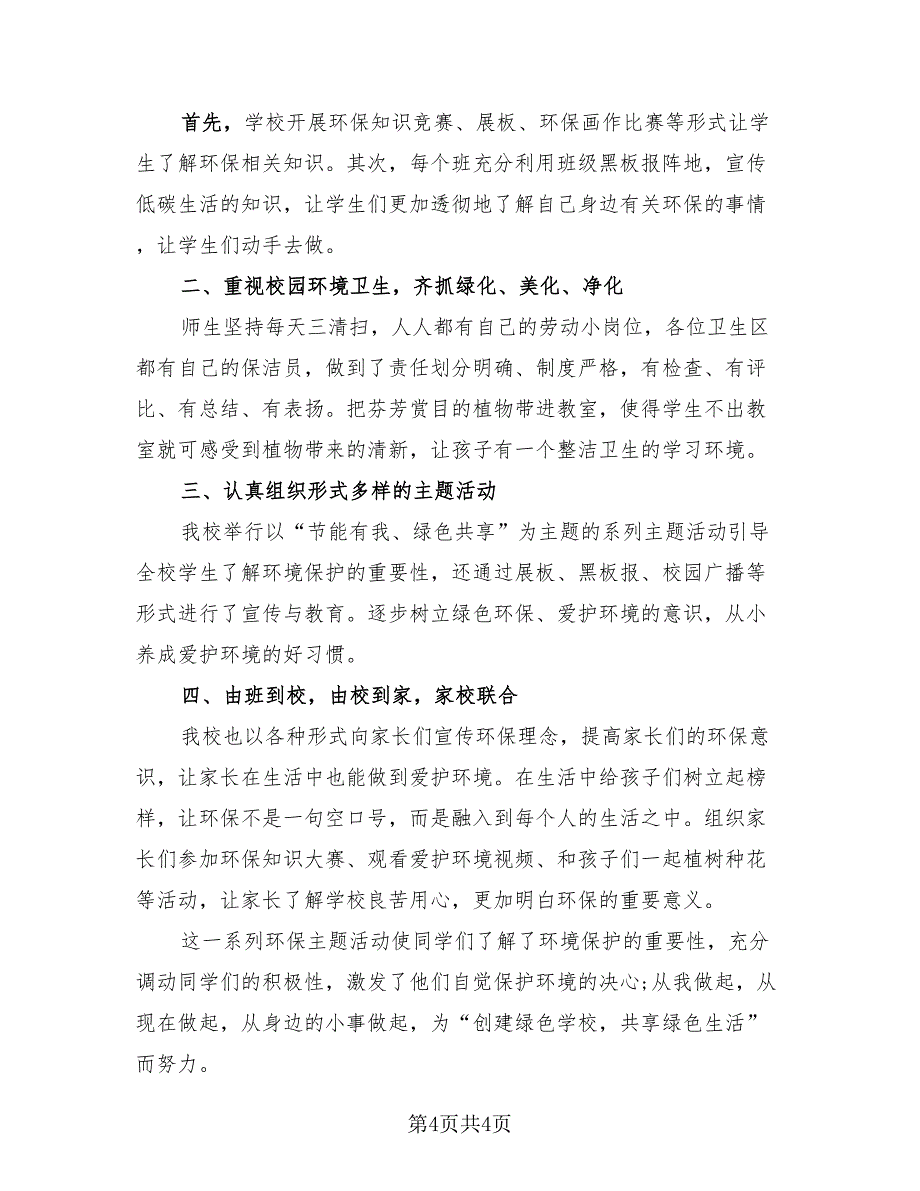 首先，学校开展环保知识竞赛、展板、环保画作比赛等形式让学
生了解环保相关知识。其次，每个班充分利用班级黑板报阵地，宣传
低碳生活的知识，让学生们更加透彻地了解自己身边有关环保的事情
，让学生们动手去做。
二、重视校园环境卫生，齐抓绿化、美化、净化
师生坚持每天三清扫，人人都有自己的劳动小岗位，各位卫生区
都有自己的保洁员，做到了责任划分明确、制度严格，有检查、有评
比、有总结、有表扬。把芬芳赏目的植物带进教室，使得学生不出教
室就可感受到植物带来的清新，让孩子有一个整洁卫生的学习环境。
三、认真组织形式多样的主题活动
我校举行以“节能有我、绿色共享”为主题的系列主题活动引导
全校学生了解环境保护的重要性，还通过展板、黑板报、校园广播等
形式进行了宣传与教育。逐步树立绿色环保、爱护环境的意识，从小
养成爱护环境的好习惯。
四、由班到校，由校到家，家校联合
我校也以各种形式向家长们宣传环保理念，提高家长们的环保意
识，让家长在生活中也能做到爱护环境。在生活中给孩子们树立起榜
样，让环保不是一句空口号，而是融入到每个人的生活之中。组织家
长们参加环保知识大赛、观看爱护环境视频、和孩子们一起植树种花
等活动，让家长了解学校良苦用心，更加明白环保的重要意义。
这一系列环保主题活动使同学们了解了环境保护的重要性，充分
调动同学们的积极性，激发了他们自觉保护环境的决心;从我做起，从
现在做起，从身边的小事做起，为“创建绿色学校，共享绿色生活”
而努力。
第4页共4页